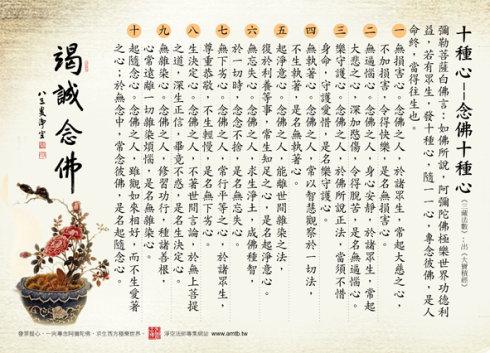 十種心──念佛十種心(三藏法數)─出《大寶積經》
彌勒菩薩白佛言：如佛所說，阿彌陀佛極樂世界功德利
益，若有眾生，發十種心，隨一一心，專念彼佛，是人
命終，當得往生也。
一 無損害心。念佛之人，於諸眾生，常起大慈之心，
不加損害，令得快樂，是名無損害心。
二 無逼惱心。念佛之人，身心安靜，於諸眾生，常起
大悲之心，深加愍傷，令得脫苦，是名無逼惱心。
三 樂守護心。念佛之人，於佛所說正法，當須不惜
身命，守護愛惜，是名樂守護心。
四 無執著心。念佛之人，常以智慧觀察於一切法，
不生執著，是名無執著心。
五 起淨意心。念佛之人，能離世間雜染之法，
復於利養等事，常生知足之心，是名起淨意心。
六 無忘失心。念佛之人，求生淨土，成佛種智，
於一切時，念念不捨，是名無忘失心。
七 無下劣心。念佛之人，常行平等之心，於諸眾生，
尊重恭敬，不生輕慢，是名無下劣心。
八 生決定心。念佛之人，不著世間言論，於無上菩提
之道，深生正信，畢竟不惑，是名生決定心。
九 無雜染心。念佛之人，修習功行，種諸善根，
心常遠離一切雜染煩惱，是名無雜染心。
十 起隨念心。念佛之人，雖觀如來相好，而不生愛著
之心；於無念中，常念彼佛，是名起隨念心。
竭誠念佛
八三叟淨空
發菩提心，一向專念阿彌陀佛，求生西方極樂世界。 淨空法師專集網站 www.amtb.tw